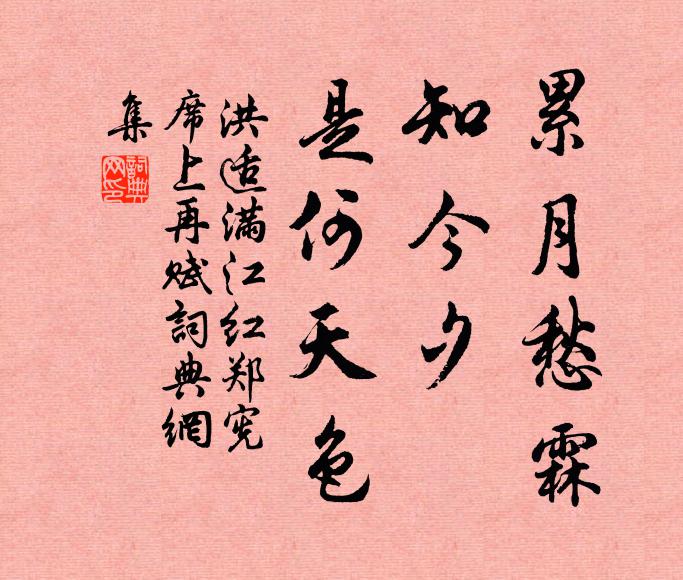 累月愁霖
知今夕
是何天色
洪适满江红郑宪
席上再赋詞典網
集
詞典网印